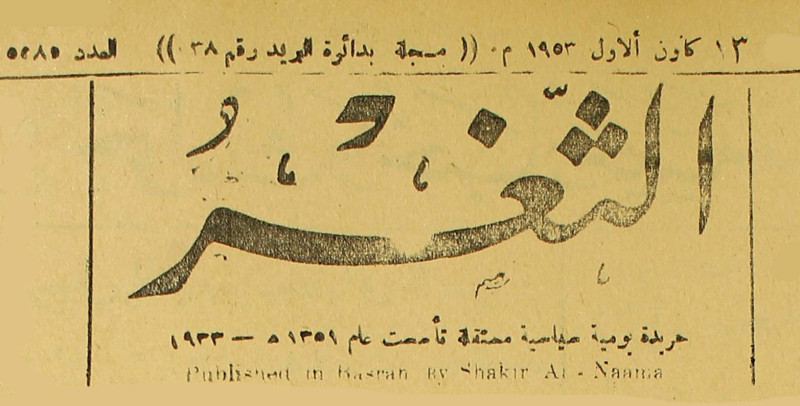 ١٣ كانون ألاول ١٩٥٣ م. (( مسجلة بدائرة البريد رقم ٣٨ )) العدد ٥٤٨٥
الثَّغْرُ
جريدة يومية سياسية مستقلة تأسست عام ١٣٥١ ه — ١٩٣٣
Published in Basrah By Shakir Al - Naama